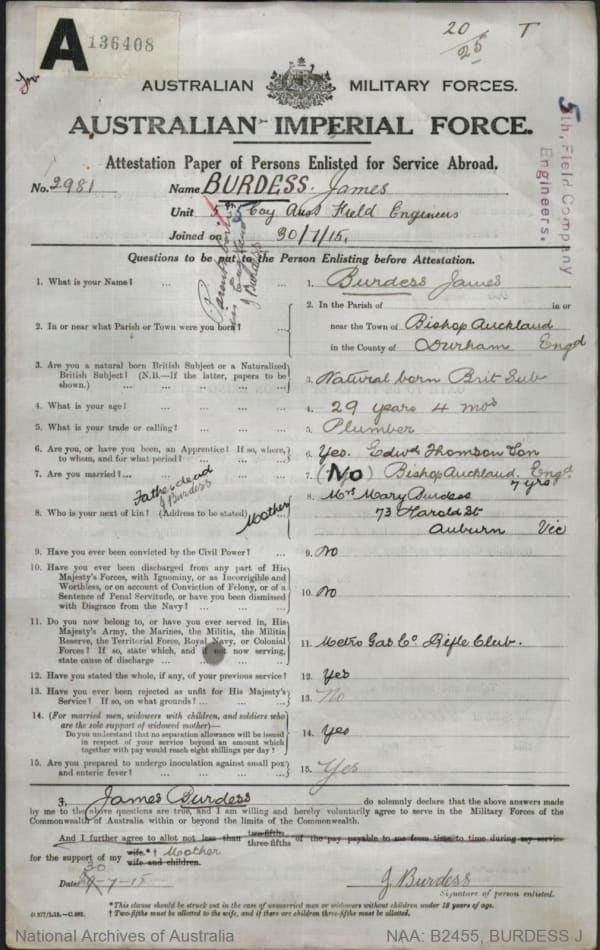 A 136408
20/25 T
AUSTRALIAN MILITARY FORCES.
AUSTRALIAN IMPERIAL FORCE.
5th. Field Company
Engineers.
Attestation Paper of Persons Enlisted for Service Abroad.
No. 2981 Name BURDESS. James
Unit 5 Coy Aust Field Engineers
Joined on 30/7/15.
Questions to be put to the Person Enlisting before Attestation.
J Burdess
1. What is your Name? ... ... 1. Burdess James
2. In or near what Parish or Town were you born? 2. In the Parish of in or
near the Town of Bishop Auckland
in the County of Durham Engd
3. Are you a natural born British Subject or a Naturalized
British Subject? (N.B.—If the latter, papers to be
shown.) ... ... ... ... 3. Natural born Brit Sub
4. What is your age? ... ... ... 4. 29 years 4 mos
5. What is your trade or calling? ... ... 5. Plumber
6. Are you, or have you been, an Apprentice? If so, where,
to whom, and for what period? ... ... 6. Yes. Edwd Thomson Son
7. Are you married? ... ... 7. (No) Bishop Auckland. Engd
7 yrs
Father dead
J Burdess
8. Who is your next of kin? (Address to be stated) Mother 8. Mrs Mary Burdess
73 Harold St
Auburn Vic
9. Have you ever been convicted by the Civil Power? ... 9. No
10. Have you ever been discharged from any part of His
Majesty's Forces, with Ignominy, or as Incorrigible and
Worthless, or on account of Conviction of Felony, or of a
Sentence of Penal Servitude, or have you been dismissed
with Disgrace from the Navy? ... ... ... 10. No
11. Do you now belong to, or have you ever served in, His
Majesty's Army, the Marines, the Militia, the Militia
Reserve, the Territorial Force, Royal Navy, or Colonial
Forces? If so, state which, and if not now serving,
state cause of discharge ... ... ... 11. Metro Gas Co. Rifle Club.
12. Have you stated the whole, if any, of your previous service? 12. Yes
13. Have you ever been rejected as unfit for His Majesty's
Service? If so, on what grounds? ... ... 13. No
14. (For married men, widowers with children, and soldiers who
are the sole support of widowed mother)—
Do you understand that no separation allowance will be issued
in respect of your service beyond an amount which
together with pay would reach eight shillings per day? 14. Yes
15. Are you prepared to undergo inoculation against small pox
and enteric fever? ... ... ... ... 15. Yes
3, James Burdess do solemnly declare that the above answers made
by me to the above questions are true, and I am willing and hereby voluntarily agree to serve in the Military Forces of the
Commonwealth of Australia within or beyond the limits of the Commonwealth.
And I further agree to allot not less than two-fifths three-fifths of the pay payable to me from time to time during my service
for the support of my wife.*† wife and children. Mother
Date 30-7-15 J Burdess
Signature of person enlisted.
*This clause should be struck out in the case of unmarried men or widowers without children under 18 years of age.
† Two-fifths must be allotted to the wife, and if there are children three-fifths must be allotted.
National Archives of Australia NAA: B2455, BURDESS J